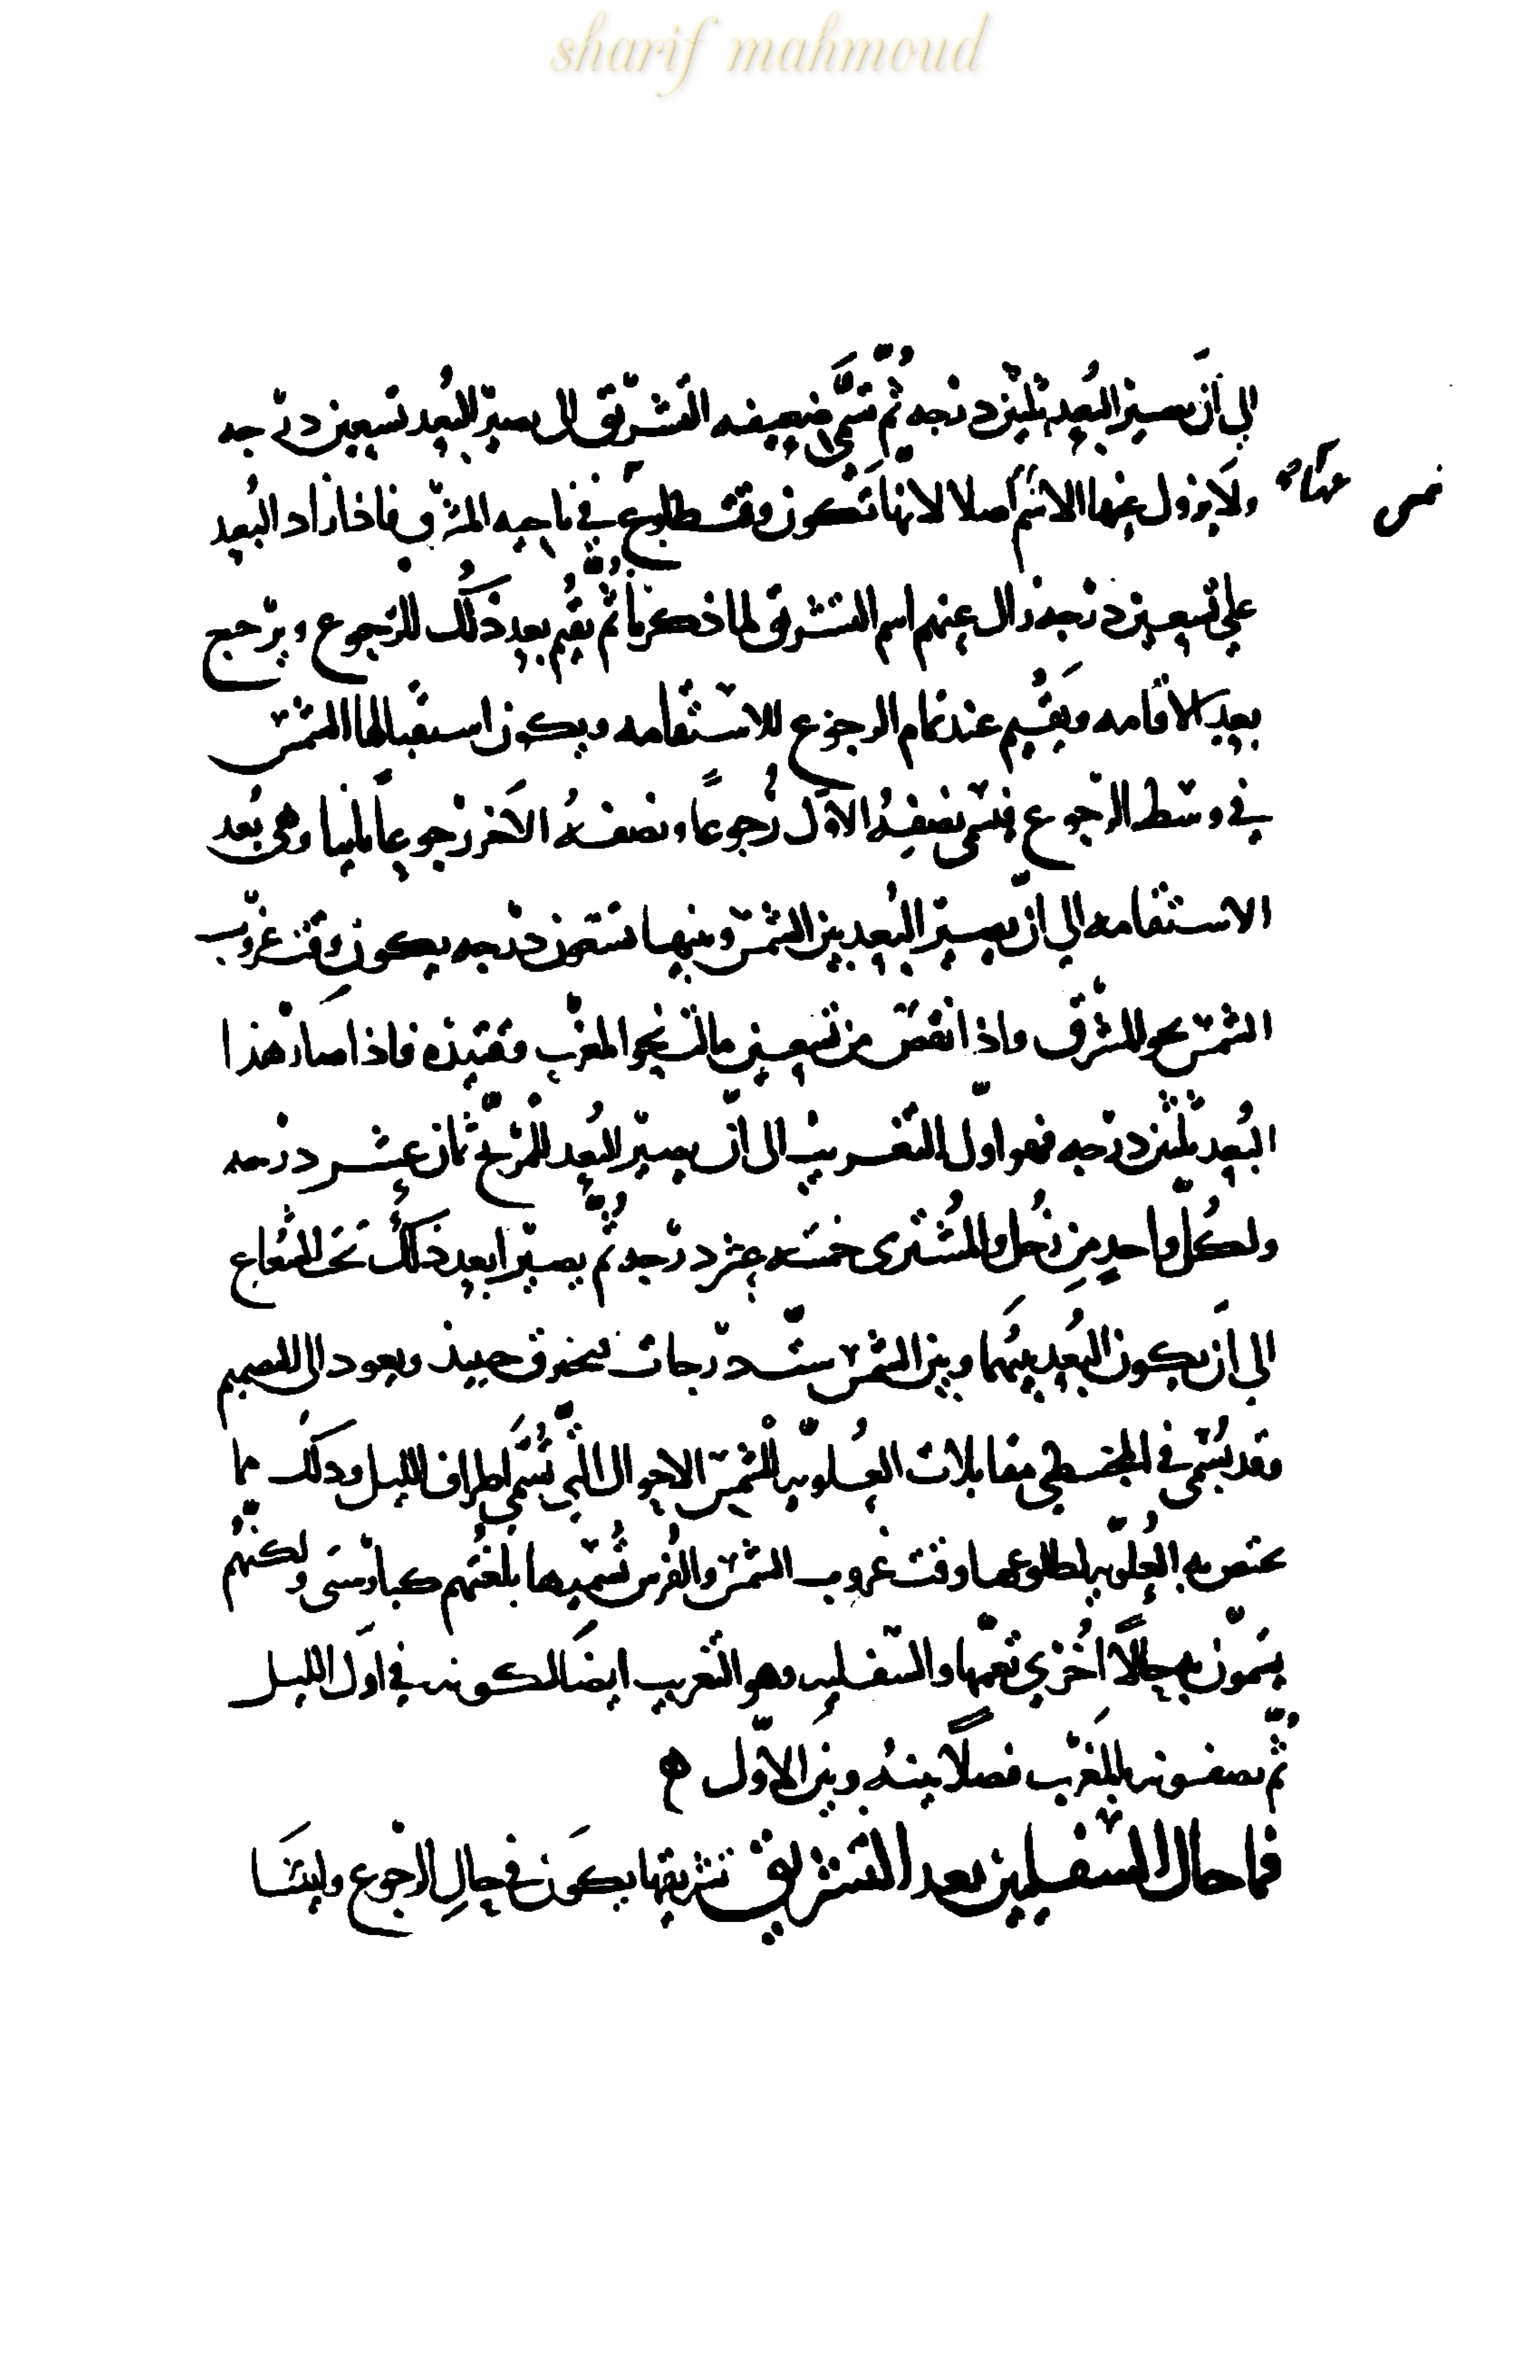 sharif mahmoud
الى أن يصير البعد ثلثين درجه ثم تسمى ضعيفه التشريق الى يصير البعد تسعين درجه
ولا يزول عنها الاسم اصلا لانها تكون وقت طلوع في ناحيه المشرق فاذا زاد البعد
على تسعين درجه زال عنهم اسم التشريق لما ذكرنا ثم يقيم بعد ذلك للرجوع ويرجع
بعد الاقامه ويقيم عند تمام الرجوع للاستقامه ويكون استقبالها الشمس
في وسط الرجوع فيسمى نصفه الاول رجوعا ونصفه الآخر رجوعا ثانيا وهى بعد
الاستقامه الى ان يصير البعد بين الشمس وبينها تسعين درجه يكون وقت غروب
الشمس نحو المشرق واذا نقص من تسعين مالت نحو المغرب وقتيذ فاذا صار هذا
البعد ثلثين درجه فهو اول التغريب الى ان يصير البعد للمريخ ثمان عشر درجه
ولكل واحد من زحل والمشترى خمسه عشر درجه ثم يصير ابعد ذلك تحت الشعاع
الى أن يكون البعد بينهما وبين الشمس ست درجات يحترق حينيذ ويعود الى التصميم
وقد يسمى في المجسطي مقابلات العلويه للشمس الاحوال التي تسمى اطراف الليل وذلك مما
يختص به العلويه لطلوعها وقت غروب الشمس والفرس تسميها بلغتهم كبارسى ولكنهم
يسمون به حالا اخرى تعمها والسفليه وهو التغريب ايضا لكونه في اول الليل
ثم يصفونه بالمغرب فصلا بينه وبين الاول ه
فما حال السفليين بعد التشريق تشريقها يكون في حال الرجوع وليسا